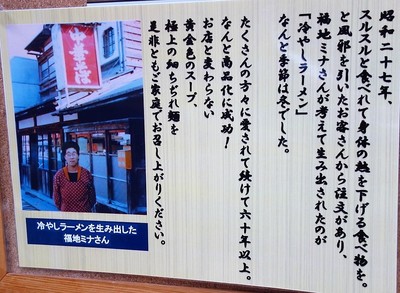 昭和二十七年、
スルスルと食べれて身体の熱を下げる食べ物を。
と風邪を引いたお客さんから注文があり、
福地ミナさんが考えて生み出されたのが
「冷やしラーメン」
なんと季節は冬でした。
たくさんの方々に愛されて続けて六十年以上。
なんと商品化に成功！
お店と変わらない
黄金色のスープ、
極上の細ちぢれ麺を
是非ともご家庭でお召し上がりください。
中華そば
冷やしラーメンを生み出した
福地ミナさん